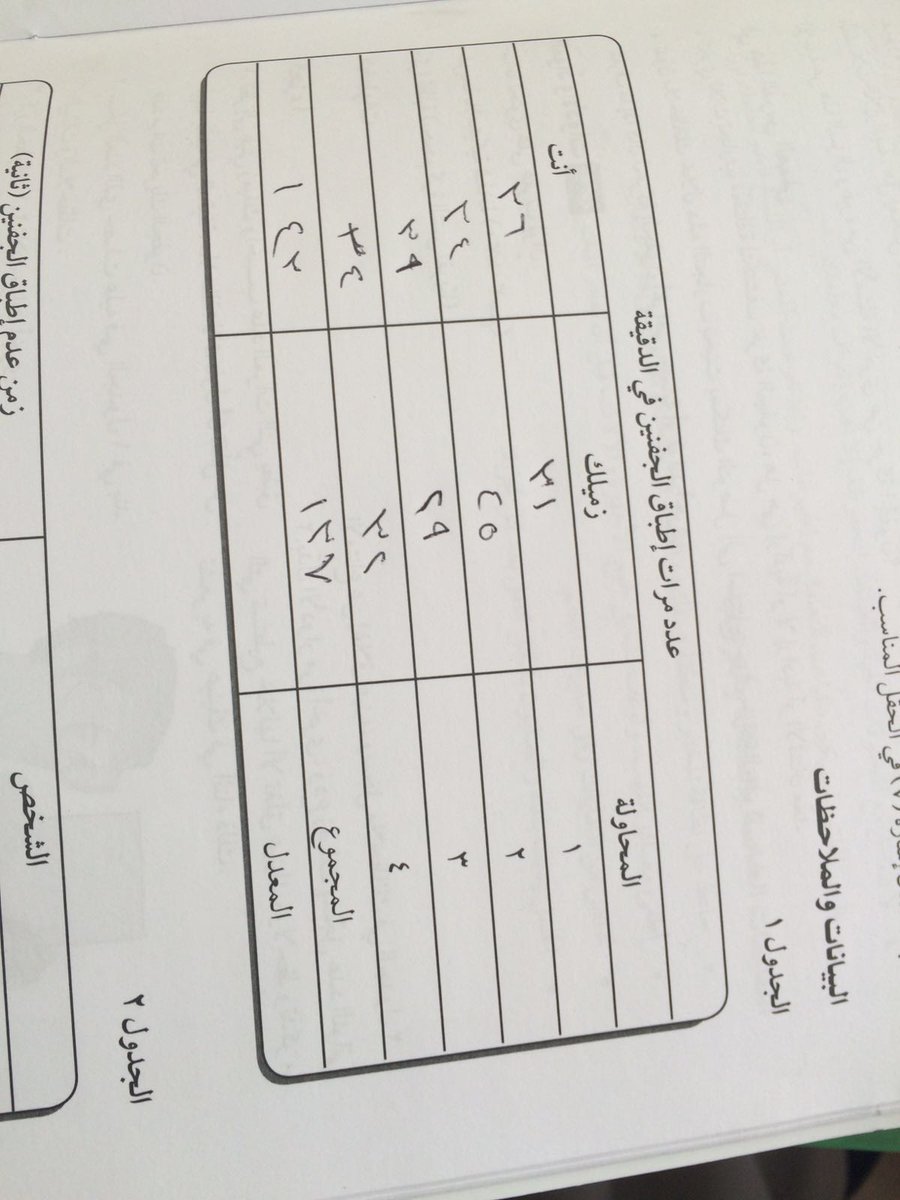 (٧) في الحقل المناسب.
البيانات والملاحظات
الجدول ١
عدد مرات إطباق الجفنين في الدقيقة
المحاولة زميلك أنت
١ ٣١ ٣٦
٢ ٤٥ ٣٤
٣ ٢٩ ٣٩
٤ ٣٢ ٣٤
المجموع ١٣٧ ١٤٣
المعدل
الجدول ٢
الشخص زمن عدم إطباق الجفنين (ثانية)